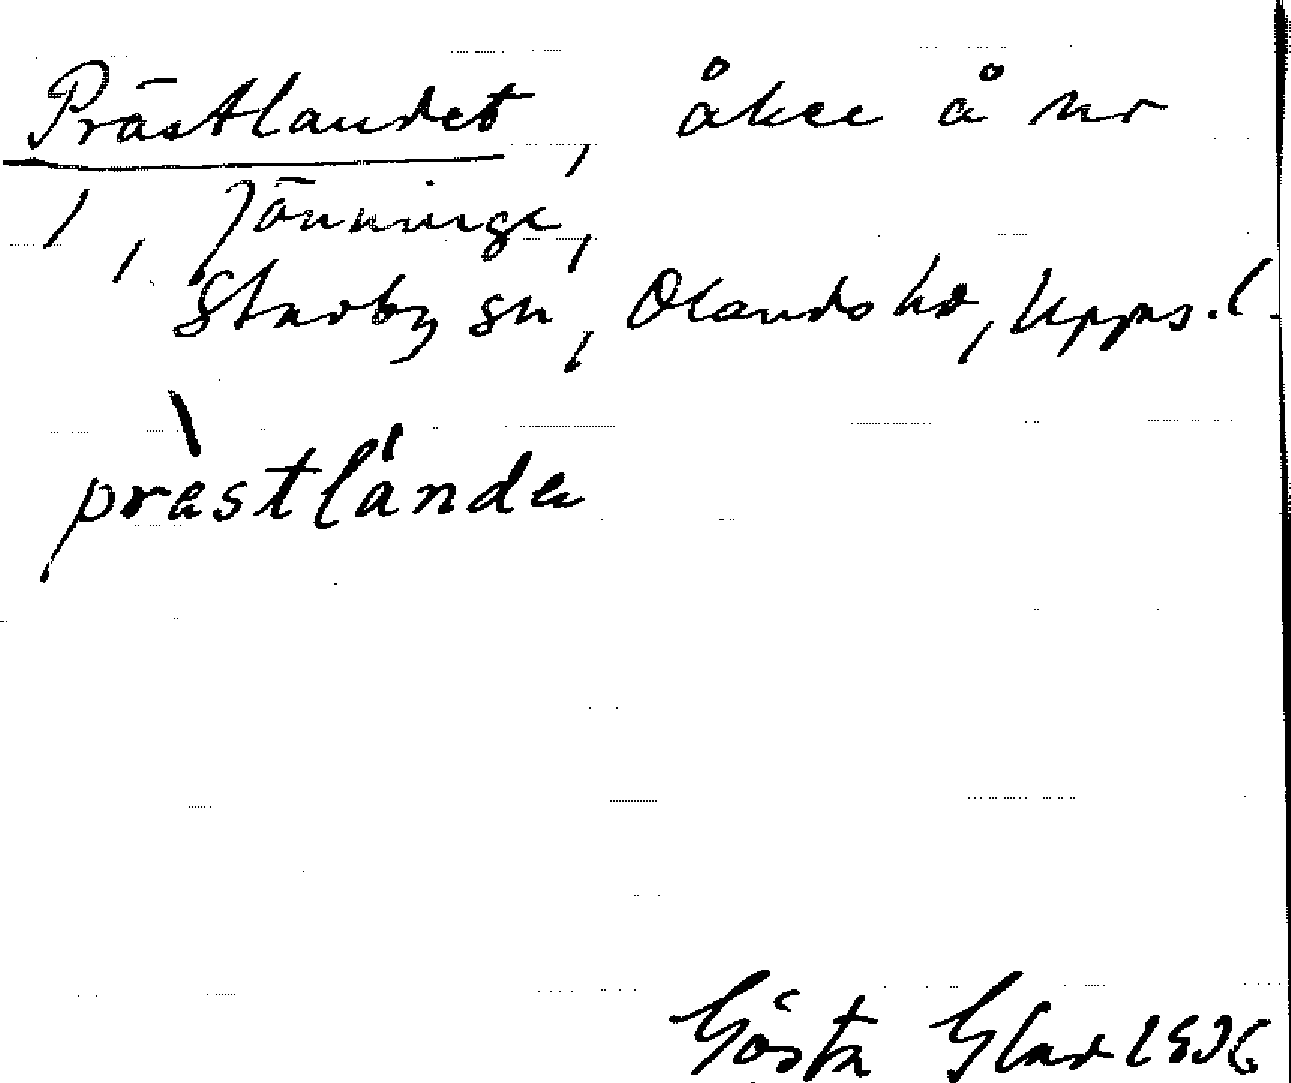 Prästlandet, åker å nr
1, Jönninge,
Skäfby sn, Olands hd, Upps. l.
prästlända
Gösta Glad 1936